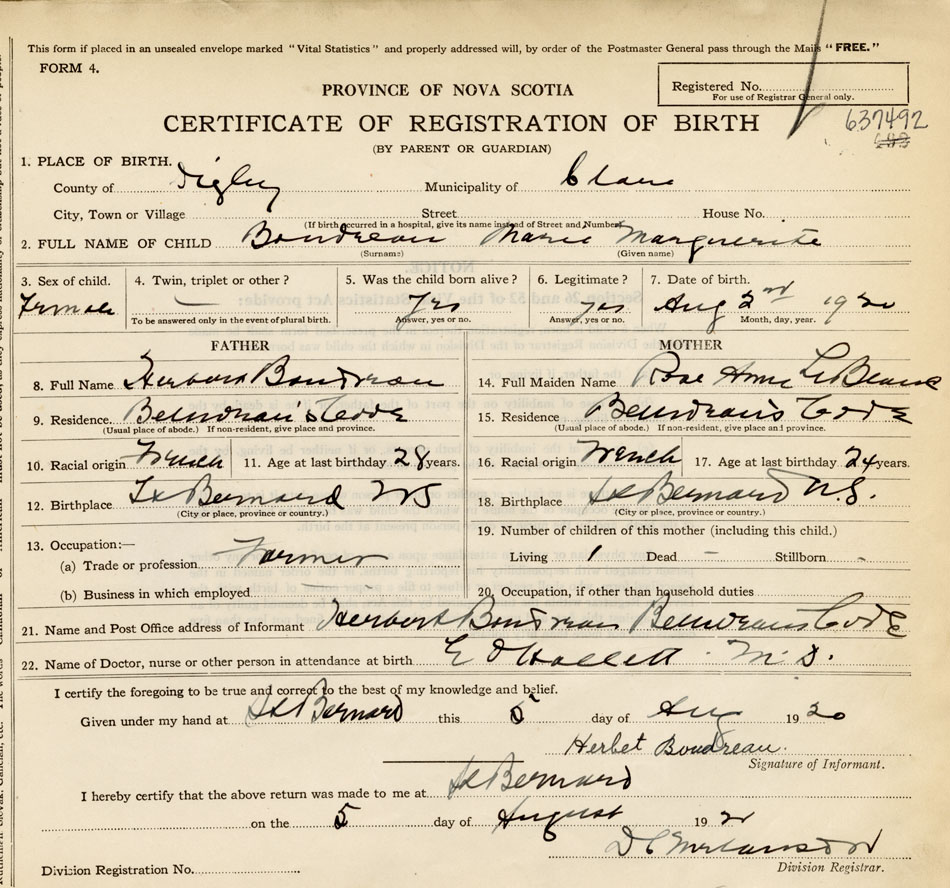 This form if placed in an unsealed envelope marked "Vital Statistics" and properly addressed will, by order of the Postmaster General pass through the Mails "FREE."
FORM 4.
Registered No.
For use of Registrar General only.
PROVINCE OF NOVA SCOTIA
CERTIFICATE OF REGISTRATION OF BIRTH
637492
(BY PARENT OR GUARDIAN)
1. PLACE OF BIRTH.
County of Digby Municipality of Clare
City, Town or Village Street House No.
(If birth occurred in a hospital, give its name instead of Street and Number)
2. FULL NAME OF CHILD Boudreau Marie Marguerite
(Surname) (Given name)
3. Sex of child. 4. Twin, triplet or other? 5. Was the child born alive? 6. Legitimate? 7. Date of birth.
Female Yes yes Aug 2nd 1920
To be answered only in the event of plural birth. Answer, yes or no. Answer, yes or no. Month, day, year.
FATHER MOTHER
8. Full Name Herbert Boudreau 14. Full Maiden Name Rose Anne LeBlanc
9. Residence. Beudrau's Cove 15. Residence Beudrau's Cove
(Usual place of abode.) If non-resident, give place and province. (Usual place of abode.) If non-resident, give place and province.
10. Racial origin French 11. Age at last birthday 28 years. 16. Racial origin French 17. Age at last birthday 24 years.
12. Birthplace St Bernard NS 18. Birthplace St Bernard N.S.
(City or place, province or country.) (City or place, province or country.)
13. Occupation:— 19. Number of children of this mother (including this child.)
(a) Trade or profession Farmer Living 1 Dead – Stillborn -
(b) Business in which employed 20. Occupation, if other than household duties
21. Name and Post Office address of Informant Herbert Boudreau Beudraus Cove
22. Name of Doctor, nurse or other person in attendance at birth E Hallett M.D.
I certify the foregoing to be true and correct to the best of my knowledge and belief.
Given under my hand at St Bernard this 5 day of Aug 1920
Herbet Boudreau.
Signature of Informant.
I hereby certify that the above return was made to me at St Bernard
on the 5 day of August 192
Division Registrar.
Division Registration No.